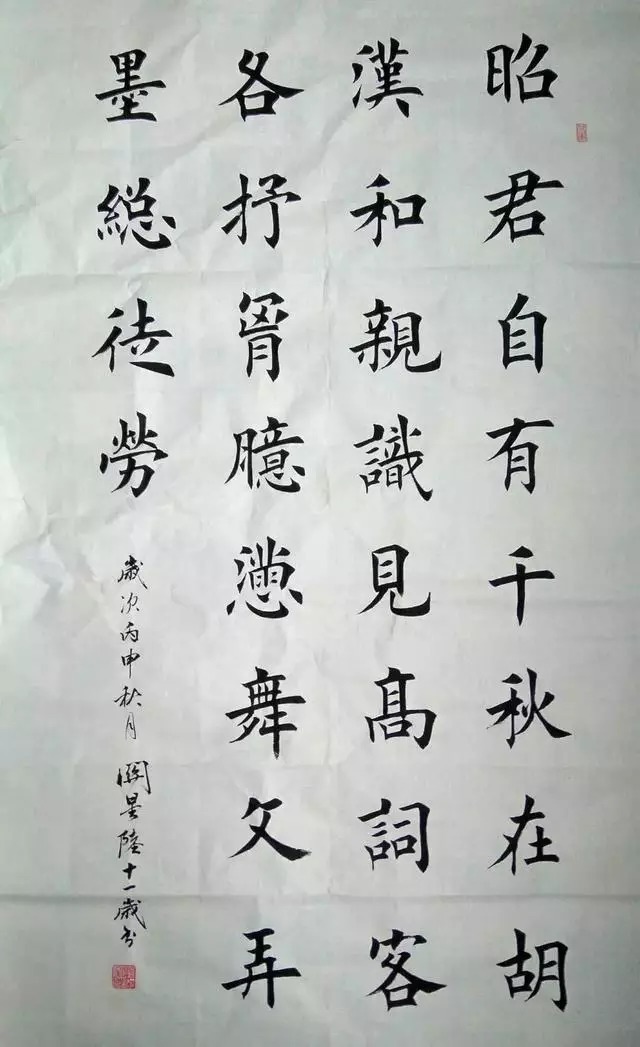 昭君自有千秋在胡
漢和親識見髙詞客
各抒胷臆懣舞文弄
墨縂徒勞
歲次丙申秋月 關星陸十一歲書